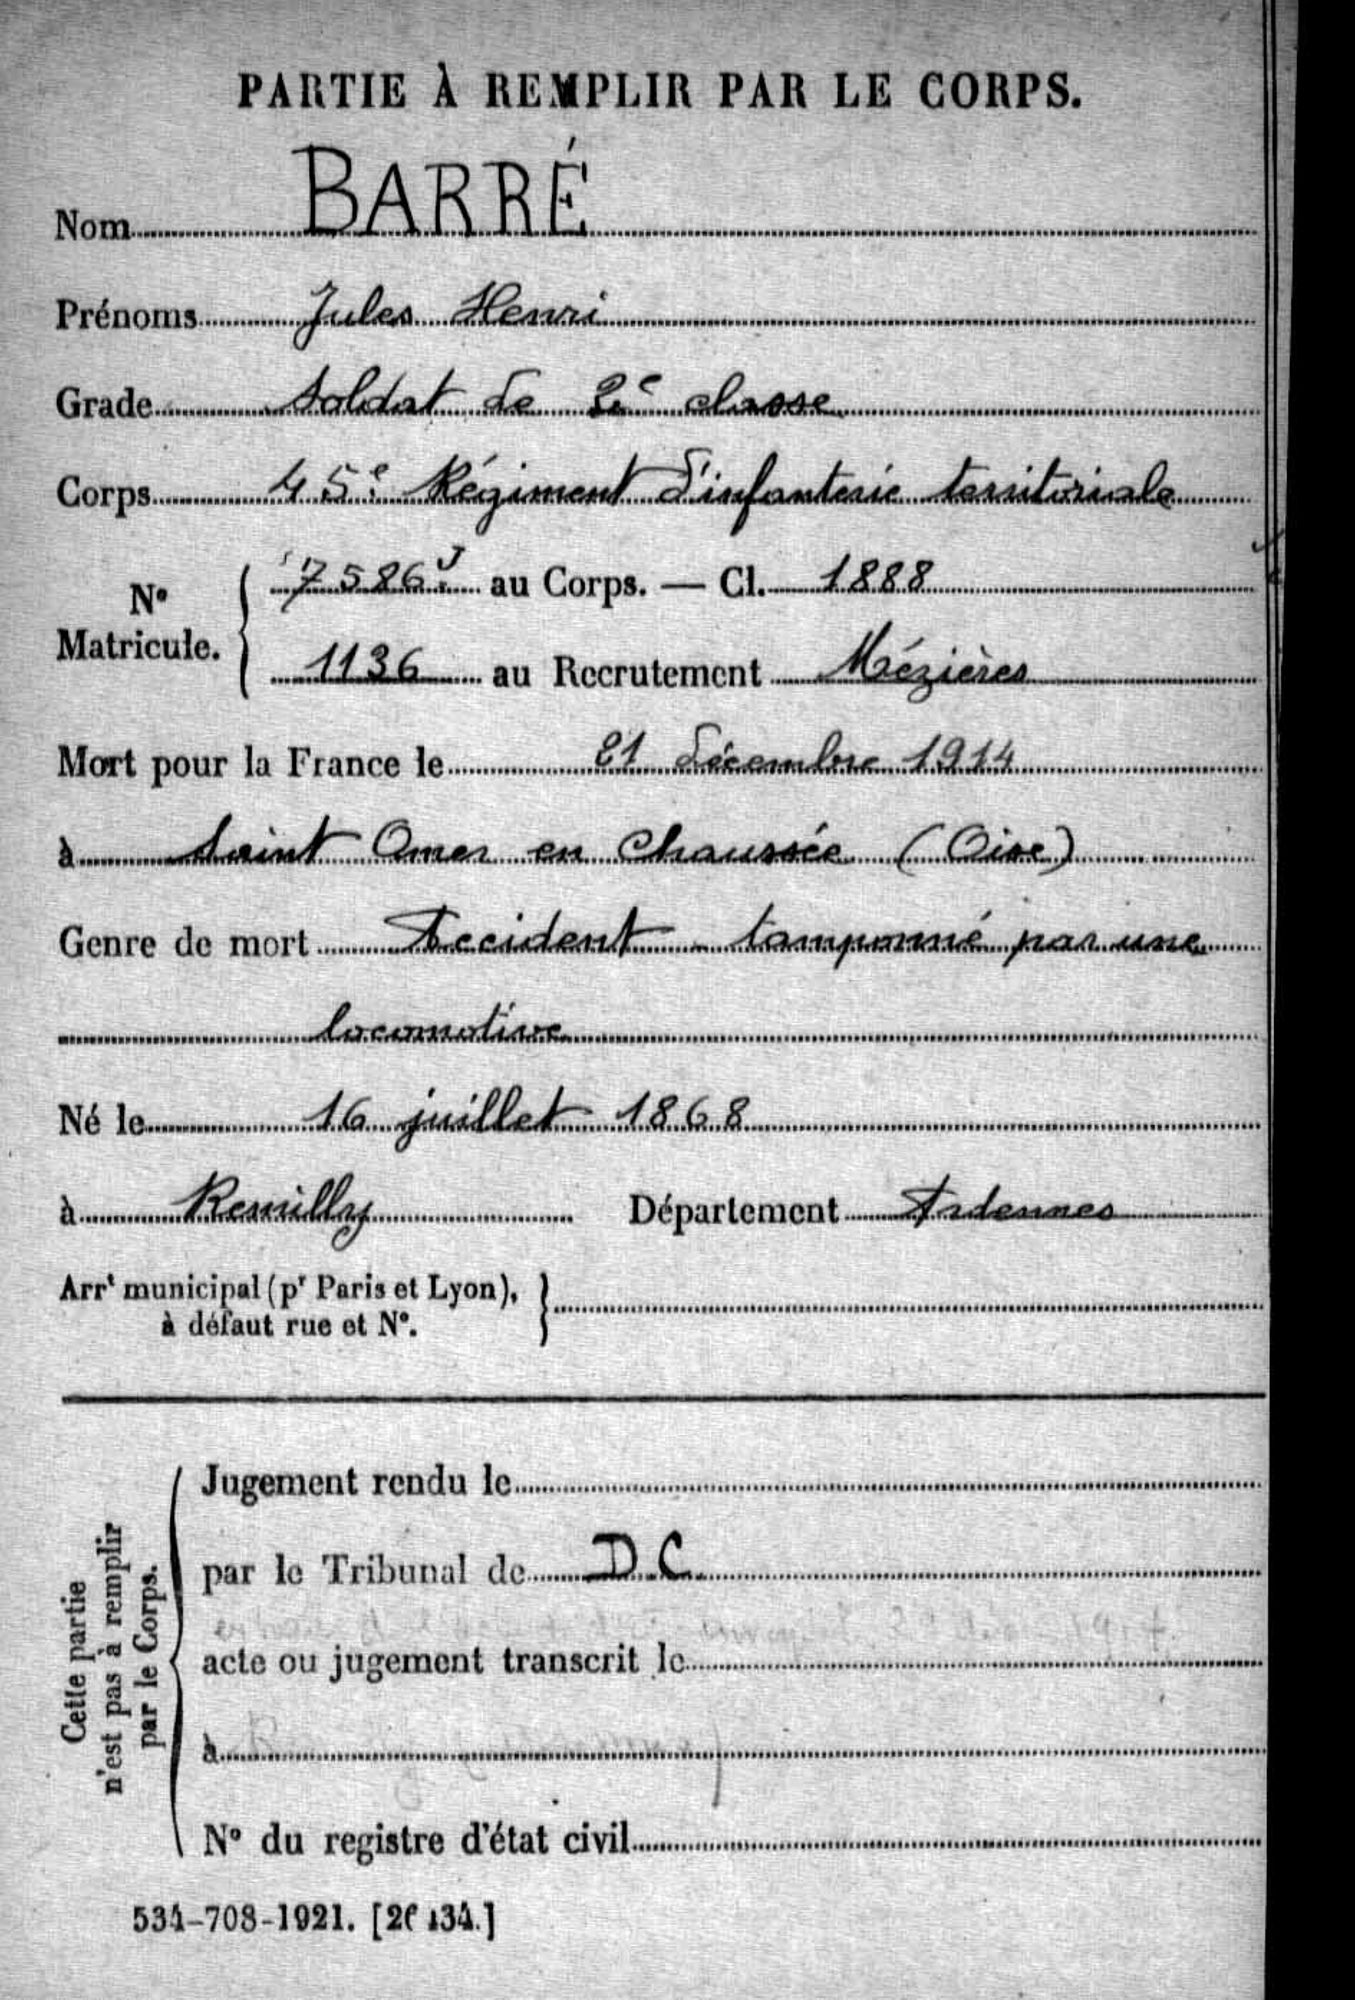 PARTIE À REMPLIR PAR LE CORPS.
Nom BARRÉ
Prénoms Jules Henri
Grade Soldat de 2e classe
Corps 45e Régiment d'infanterie territoriale
No Matricule. { 7586 J au Corps. — Cl. 1888
1136 au Recrutement Mézières
Mort pour la France le 21 décembre 1914
à Saint Omer en Chaussée (Oise)
Genre de mort Accident - tamponné par une
locomotive
Né le 16 juillet 1868
à Remilly Département Ardennes
Arrt municipal (pr Paris et Lyon), }
à défaut rue et No.
Cette partie
n'est pas à remplir
par le Corps.
Jugement rendu le
par le Tribunal de D.C.
acte ou jugement transcrit le
à
No du registre d'état civil
534-708-1921.